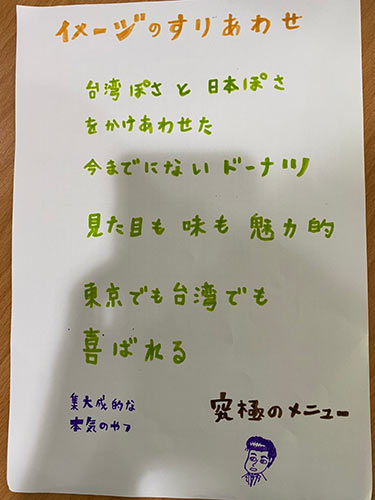 イメージのすりあわせ
台湾ぽさと日本ぽさ
をかけあわせた
今までにないドーナツ
見た目も味も魅力的
東京でも台湾でも
喜ばれる
集大成的な
本気のやつ
究極のメニュー